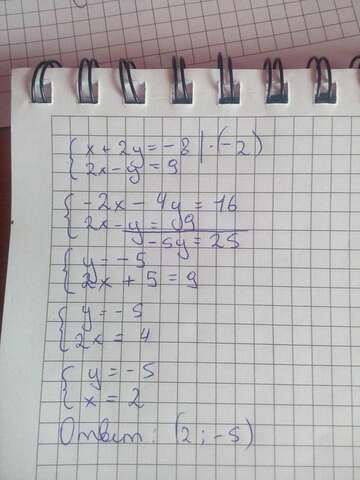 x + 2y = -8 | · (-2)
2x - y = 9
-2x - 4y = 16
2x - y = 9
-5y = 25
y = -5
2x + 5 = 9
y = -5
2x = 4
y = -5
x = 2
Ответ: (2; -5)